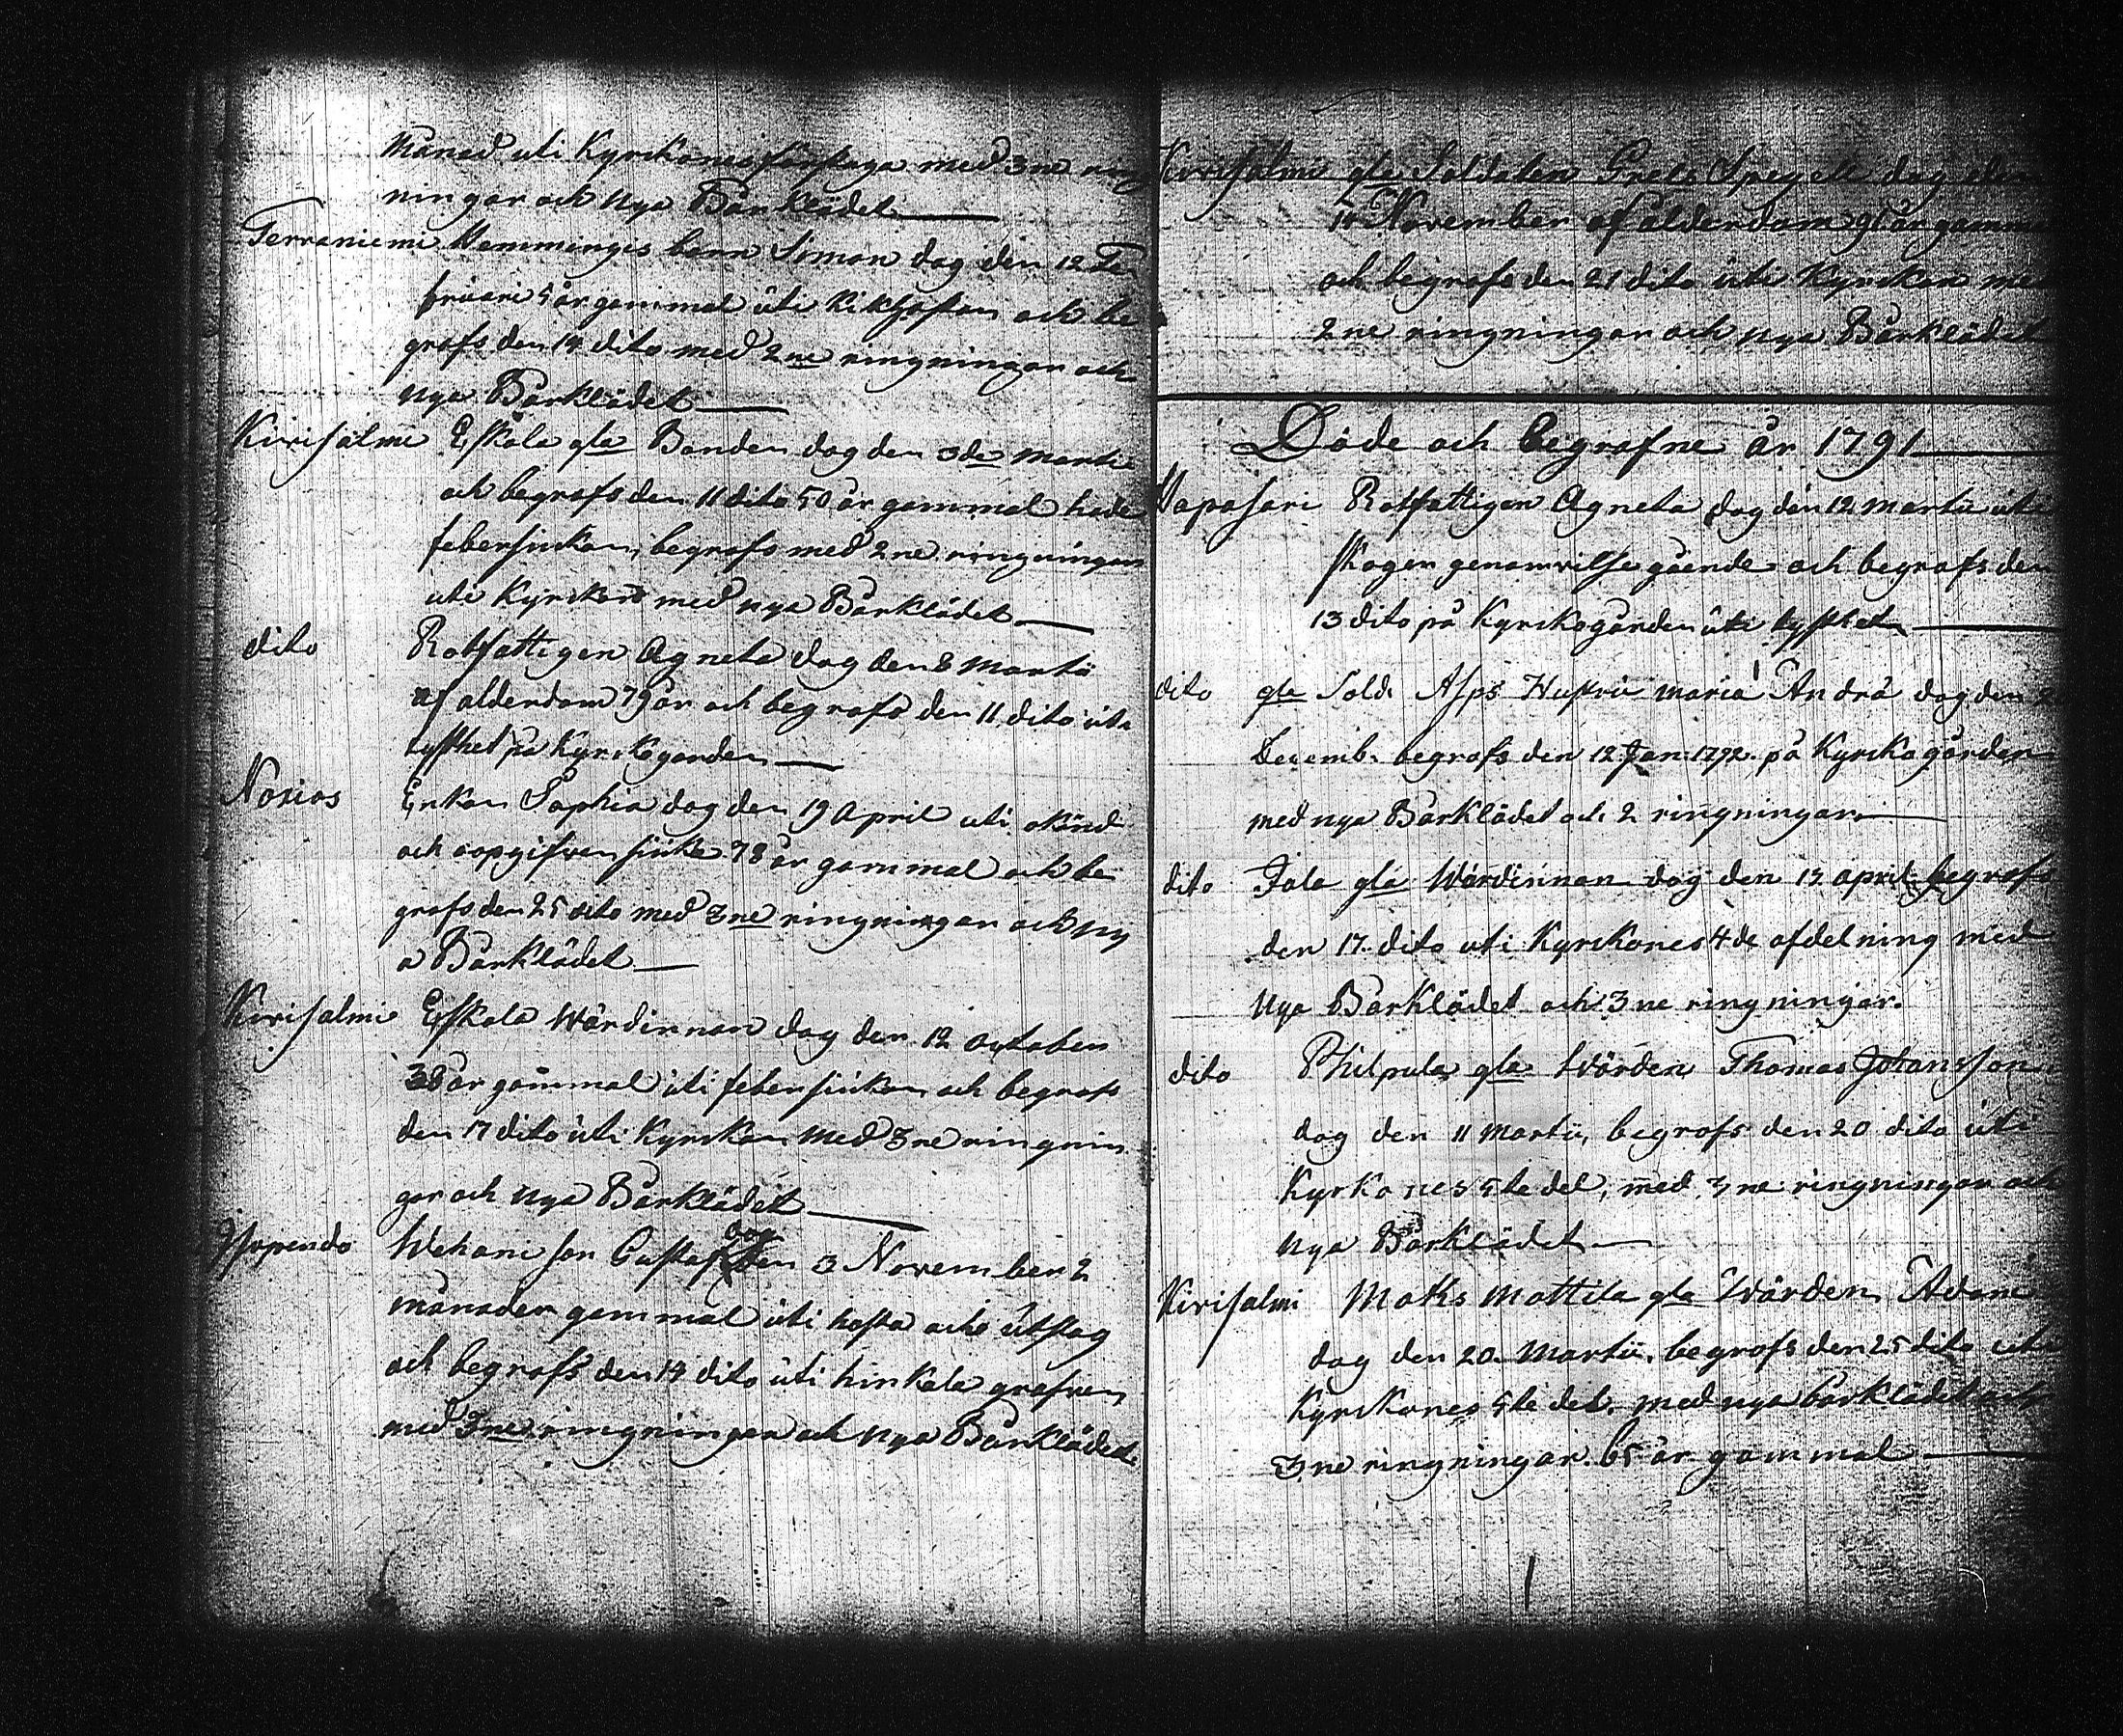 Månad uti Kyrckones förstuga med 3ne ring
ningar och nya Bårklädet
Terraniemi Hemminges barn Simon dog den 12 Fe
bruari 5 år gammal uti Kikhostan och be
grofs den 14 dito med 2ne ringningar och
nya Bårklädet
Kirisalmi Eskola gla Bonden dog den 3de Martii
och begrofs den 11 dito 50 år gammal hade
febersiukan, begrofs med 2ne ringningar
uti Kyrckan med nya Bårklädet
dito Rotfattigen Agneta dog den 8 Martii
af ålderdom 79 år och begrofs den 11 dito uti
tysthet på Kyrckogården
Norios Enkan Sophia dog den 19 April uti okänd
och oopgifven siuka 78 år gammal och be
grofs den 25 dito med 3ne ringningar och ny
a Bårklädet
Kirisalmi Eskola Wärdinnan dog den 12 October
38 år gammal uti febersiukan och begrofs
den 17 dito uti Kyrckan med 3ne ringnin
gar och nya Bårklädet
Wehani son Gustaf dog den 3 November 2
månader gammal uti hosta och utslag
och begrofs den 14 dito uti hinkala grafven
med 3ne ringningar och nya Bårklädet
Kirisalmi gla Soldaten Grels Spegell dog den
November af ålderdom 91 år gammal
och begrofs den 21 dito uti Kyrckan med
2ne ringningar och nya Bårklädet
Döde och begrafne år 1791
Hapasari Rotfattigen Agneta dog den 12 Martii uti
skogen genom vilse gående och begrofs den
13 dito på Kyrckogården uti tysthet
dito gla Sold. Asps Hustru Maria Andrä dog den
Decemb. begrofs den 12 Jan. 1792. på Kyrckogården
med nya Bårklädet och 2 ringningar
dito Jala gla Wärdinnan dog den 13 april begrofs
den 17. dito uti Kyrckones 4de afdelning med
nya Bårklädet och 3ne ringningar.
dito Philpula gla Wärden Thomas Johansson
dog den 11 Martii, begrofs den 20 dito uti
Kyrkones 5te del, med 3ne ringningar och
nya Bårklädet
Kirisalmi Maks Mattila gla Wärden Adam
dog den 20. Martii. begrofs den 25 dito uti
Kyrckones 5te del. med nya bårklädet och
3ne ringningar. 65 år gammal